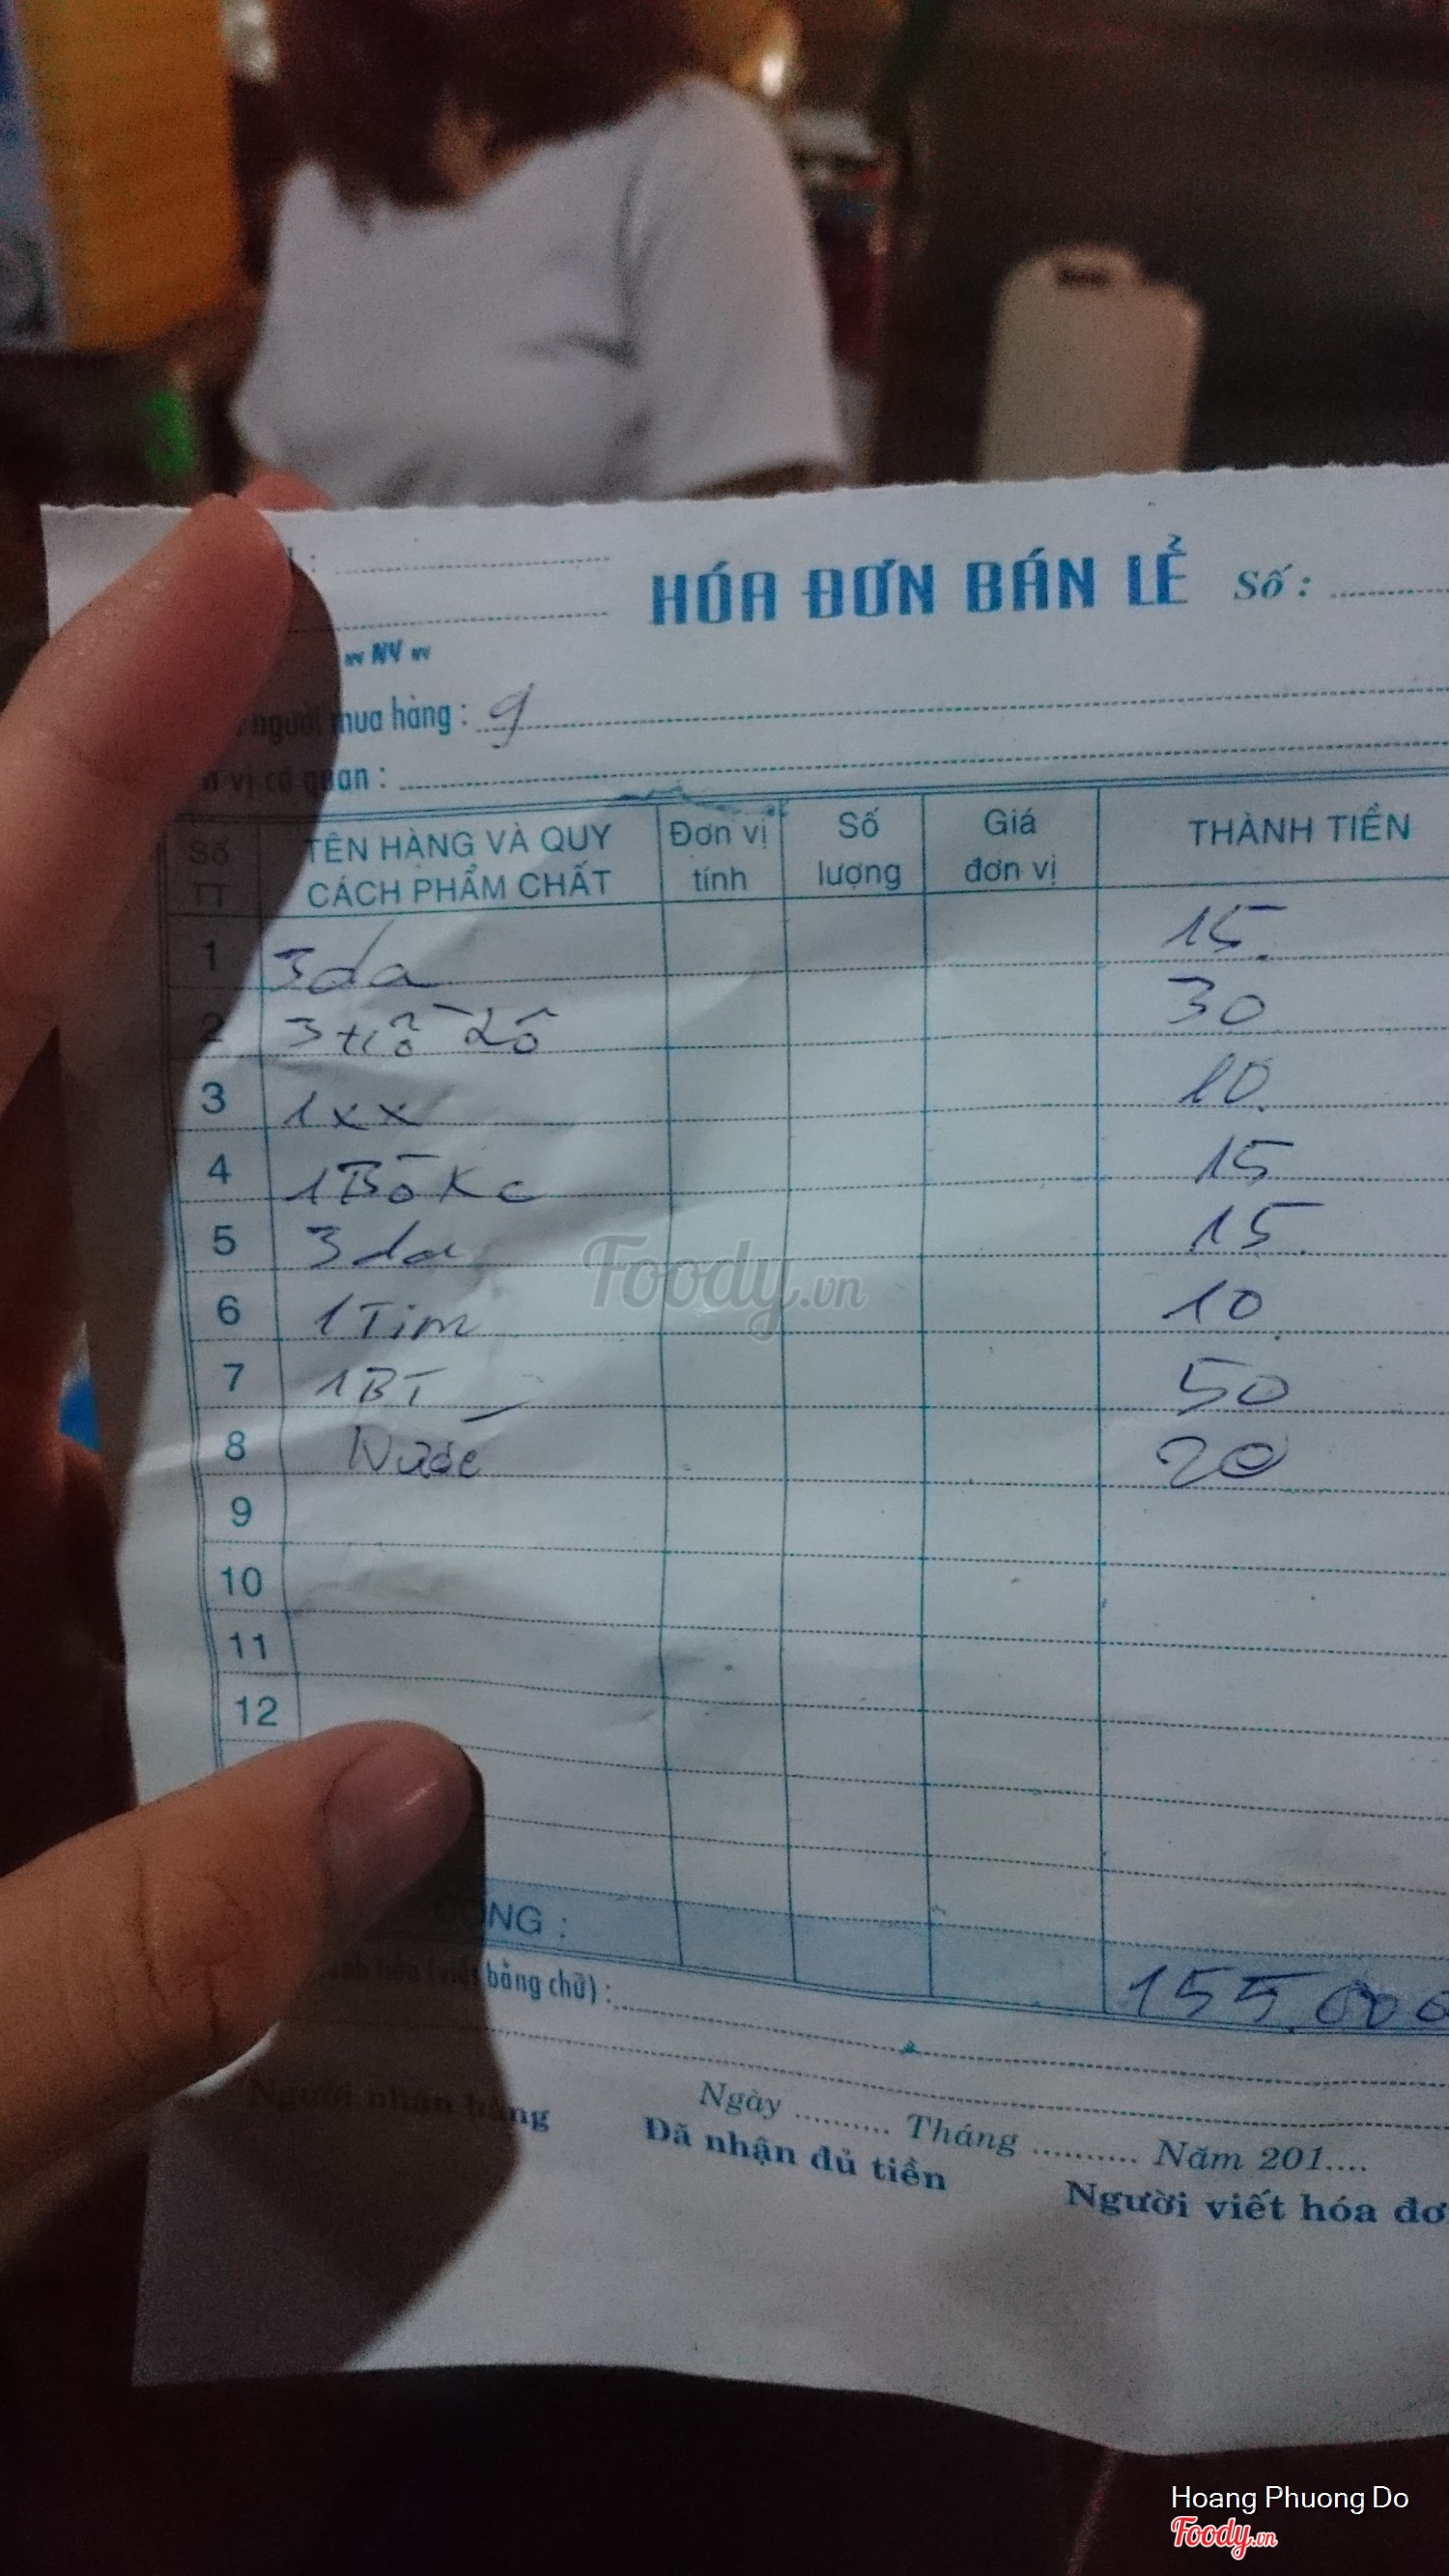 HÓA ĐƠN BÁN LẺ Số :
NV
người mua hàng : 9
vị cơ quan :
Số TT TÊN HÀNG VÀ QUY CÁCH PHẨM CHẤT Đơn vị tính Số lượng Giá đơn vị THÀNH TIỀN
1 3 da 15
2 30
3 1xx 10
4 1 Bò Kc 15
5 3 da 15
6 1 Tim 10
7 1 BT 50
8 Nước 20
9
10
11
12
CỘNG : 155.000
bằng chữ) :
Ngày .......... Tháng .......... Năm 201....
Người nhận hàng Đã nhận đủ tiền Người viết hóa đơ
Foody.vn
Hoang Phuong Do
Foody.vn